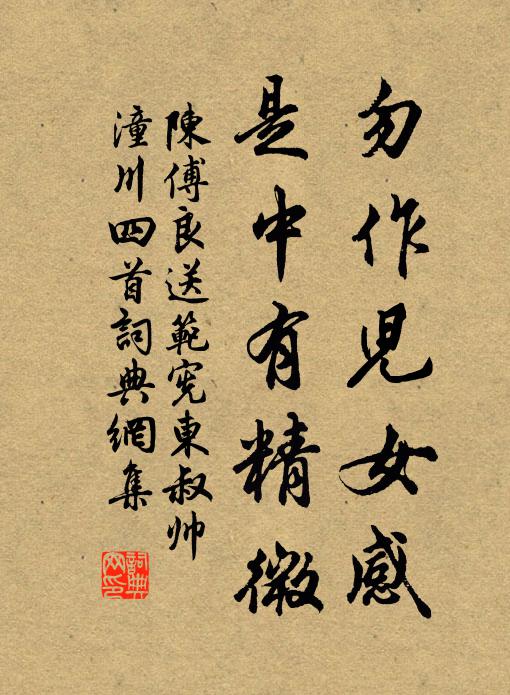 勿作児女感
是中有精微
陳傅良送範宪東叔帅
潼川四首詞典網集
詞典网印